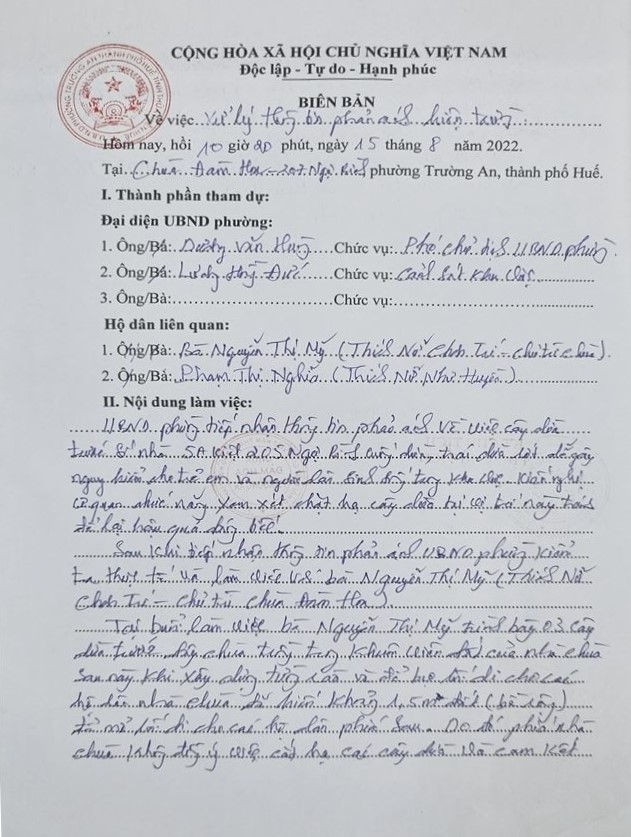 CỘNG HÒA XÃ HỘI CHỦ NGHĨA VIỆT NAM
Độc lập - Tự do - Hạnh phúc
BIÊN BẢN
Về việc Xử lý thông tin phản ánh hiện trường
Hôm nay, hồi 10 giờ 20 phút, ngày 15 tháng 8 năm 2022.
Tại Chùa Đàm Hoa phường Trường An, thành phố Huế.
I. Thành phần tham dự:
Đại diện UBND phường:
1. Ông/Bà: Dương Văn Hưng Chức vụ: Phó chủ tịch UBND phường.
2. Ông/Bà: Chức vụ: Cảnh sát khu vực
3. Ông/Bà: Chức vụ:
Hộ dân liên quan:
1. Ông/Bà: Bà Nguyễn Thị Mỹ (Thích Nữ Chơn Trí - chủ trì chùa).
2. Ông/Bà: Phạm Thị Nghĩa (Thích Nữ Như Huyền)
II. Nội dung làm việc:
UBND phường tiếp nhận thông tin phản ánh về việc cây dừa
trước số nhà 5A kiệt 205 Ngự Bình trái dừa rơi dễ gây
nguy hiểm cho trẻ em và người dân sinh sống trong khu vực. Kiến nghị
cơ quan chức năng xem xét chặt hạ cây dừa tại vị trí này tránh
để lại hậu quả đáng tiếc
Sau khi tiếp nhận thông tin phản ánh UBND phường kiểm
tra thực tế và làm việc với bà Nguyễn Thị Mỹ (Thích Nữ
Chơn Trí - chủ trì chùa Đàm Hoa).
Tại buổi làm việc bà Nguyễn Thị Mỹ trình bày 03 cây
dừa trước đây chùa trồng trong khuôn viên đất của nhà chùa
sau này khi xây dựng tường rào và để tạo lối đi cho các
hộ dân nhà chùa đã hiến khoảng 1,5m đất (bề rộng)
để mở lối đi cho các hộ dân phía sau. Do đó phía nhà
chùa không đồng ý việc chặt hạ các cây dừa và cam kết